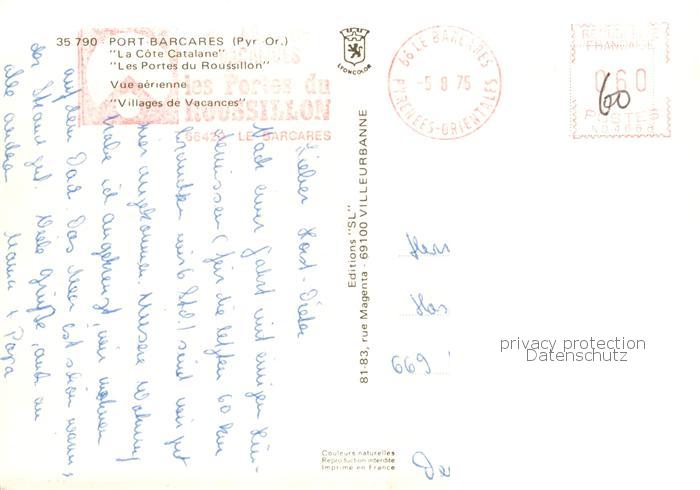 35 790 - PORT-BARCARES (Pyr.-Or.)
"La Côte Catalane"
"Les Portes du Roussillon"
Vue aérienne
"Villages de Vacances"
les Portes du
ROUSSILLON
66420 LE BARCARES
LYONCOLOR
66 LE BARCARES
-5 8 75
PYRENEES-ORIENTALES
REPUBLIQUE
FRANCAISE
0,60
60
POSTES
Lieber Horst-Dieter
Nach einer Fahrt mit einigen Hin-
dernissen (für die letzten 60 km
brauchten wir 6 Std.) sind wir gut
hier angekommen. Unsere Wohnung
habe ich angekreuzt, wir wohnen
auf dem Dach. Das Meer ist schön warm,
der Strand gut. Viele Grüße, auch an
alle andren
Mama + Papa
Editions "SL"
81-83, rue Magenta - 69100 VILLEURBANNE
Herr
669
Couleurs naturelles
Reproduction interdite
Imprimé en France
privacy protection
Datenschutz